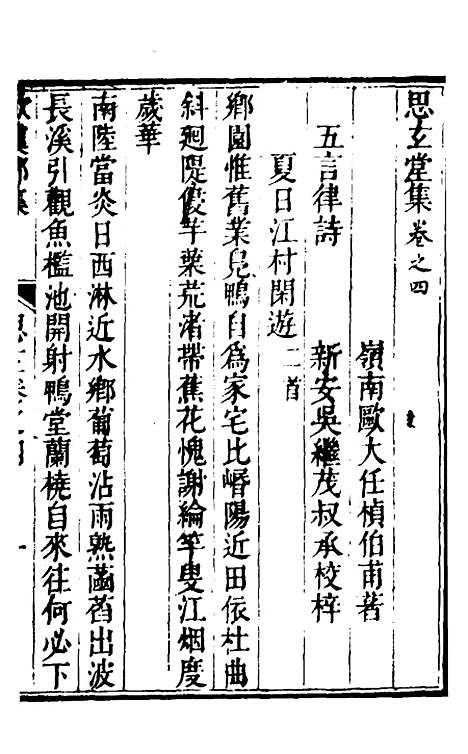 思玄堂集卷之四
嶺南歐大任楨伯甫著
五言律詩
新安吳繼茂叔承校梓
夏日江村閑遊二首
鄉園惟舊業兒鴨自爲家宅比嶓陽近田依杜曲
斜廻隄優芋栗荒渚帶蕉花愧謝綸竿叟江烟度
歲華
南陸當炎日西淋近水鄉葡萄沾雨熟菡萏出波
長溪引觀魚檻池開射鴨堂蘭橈自來往何必下